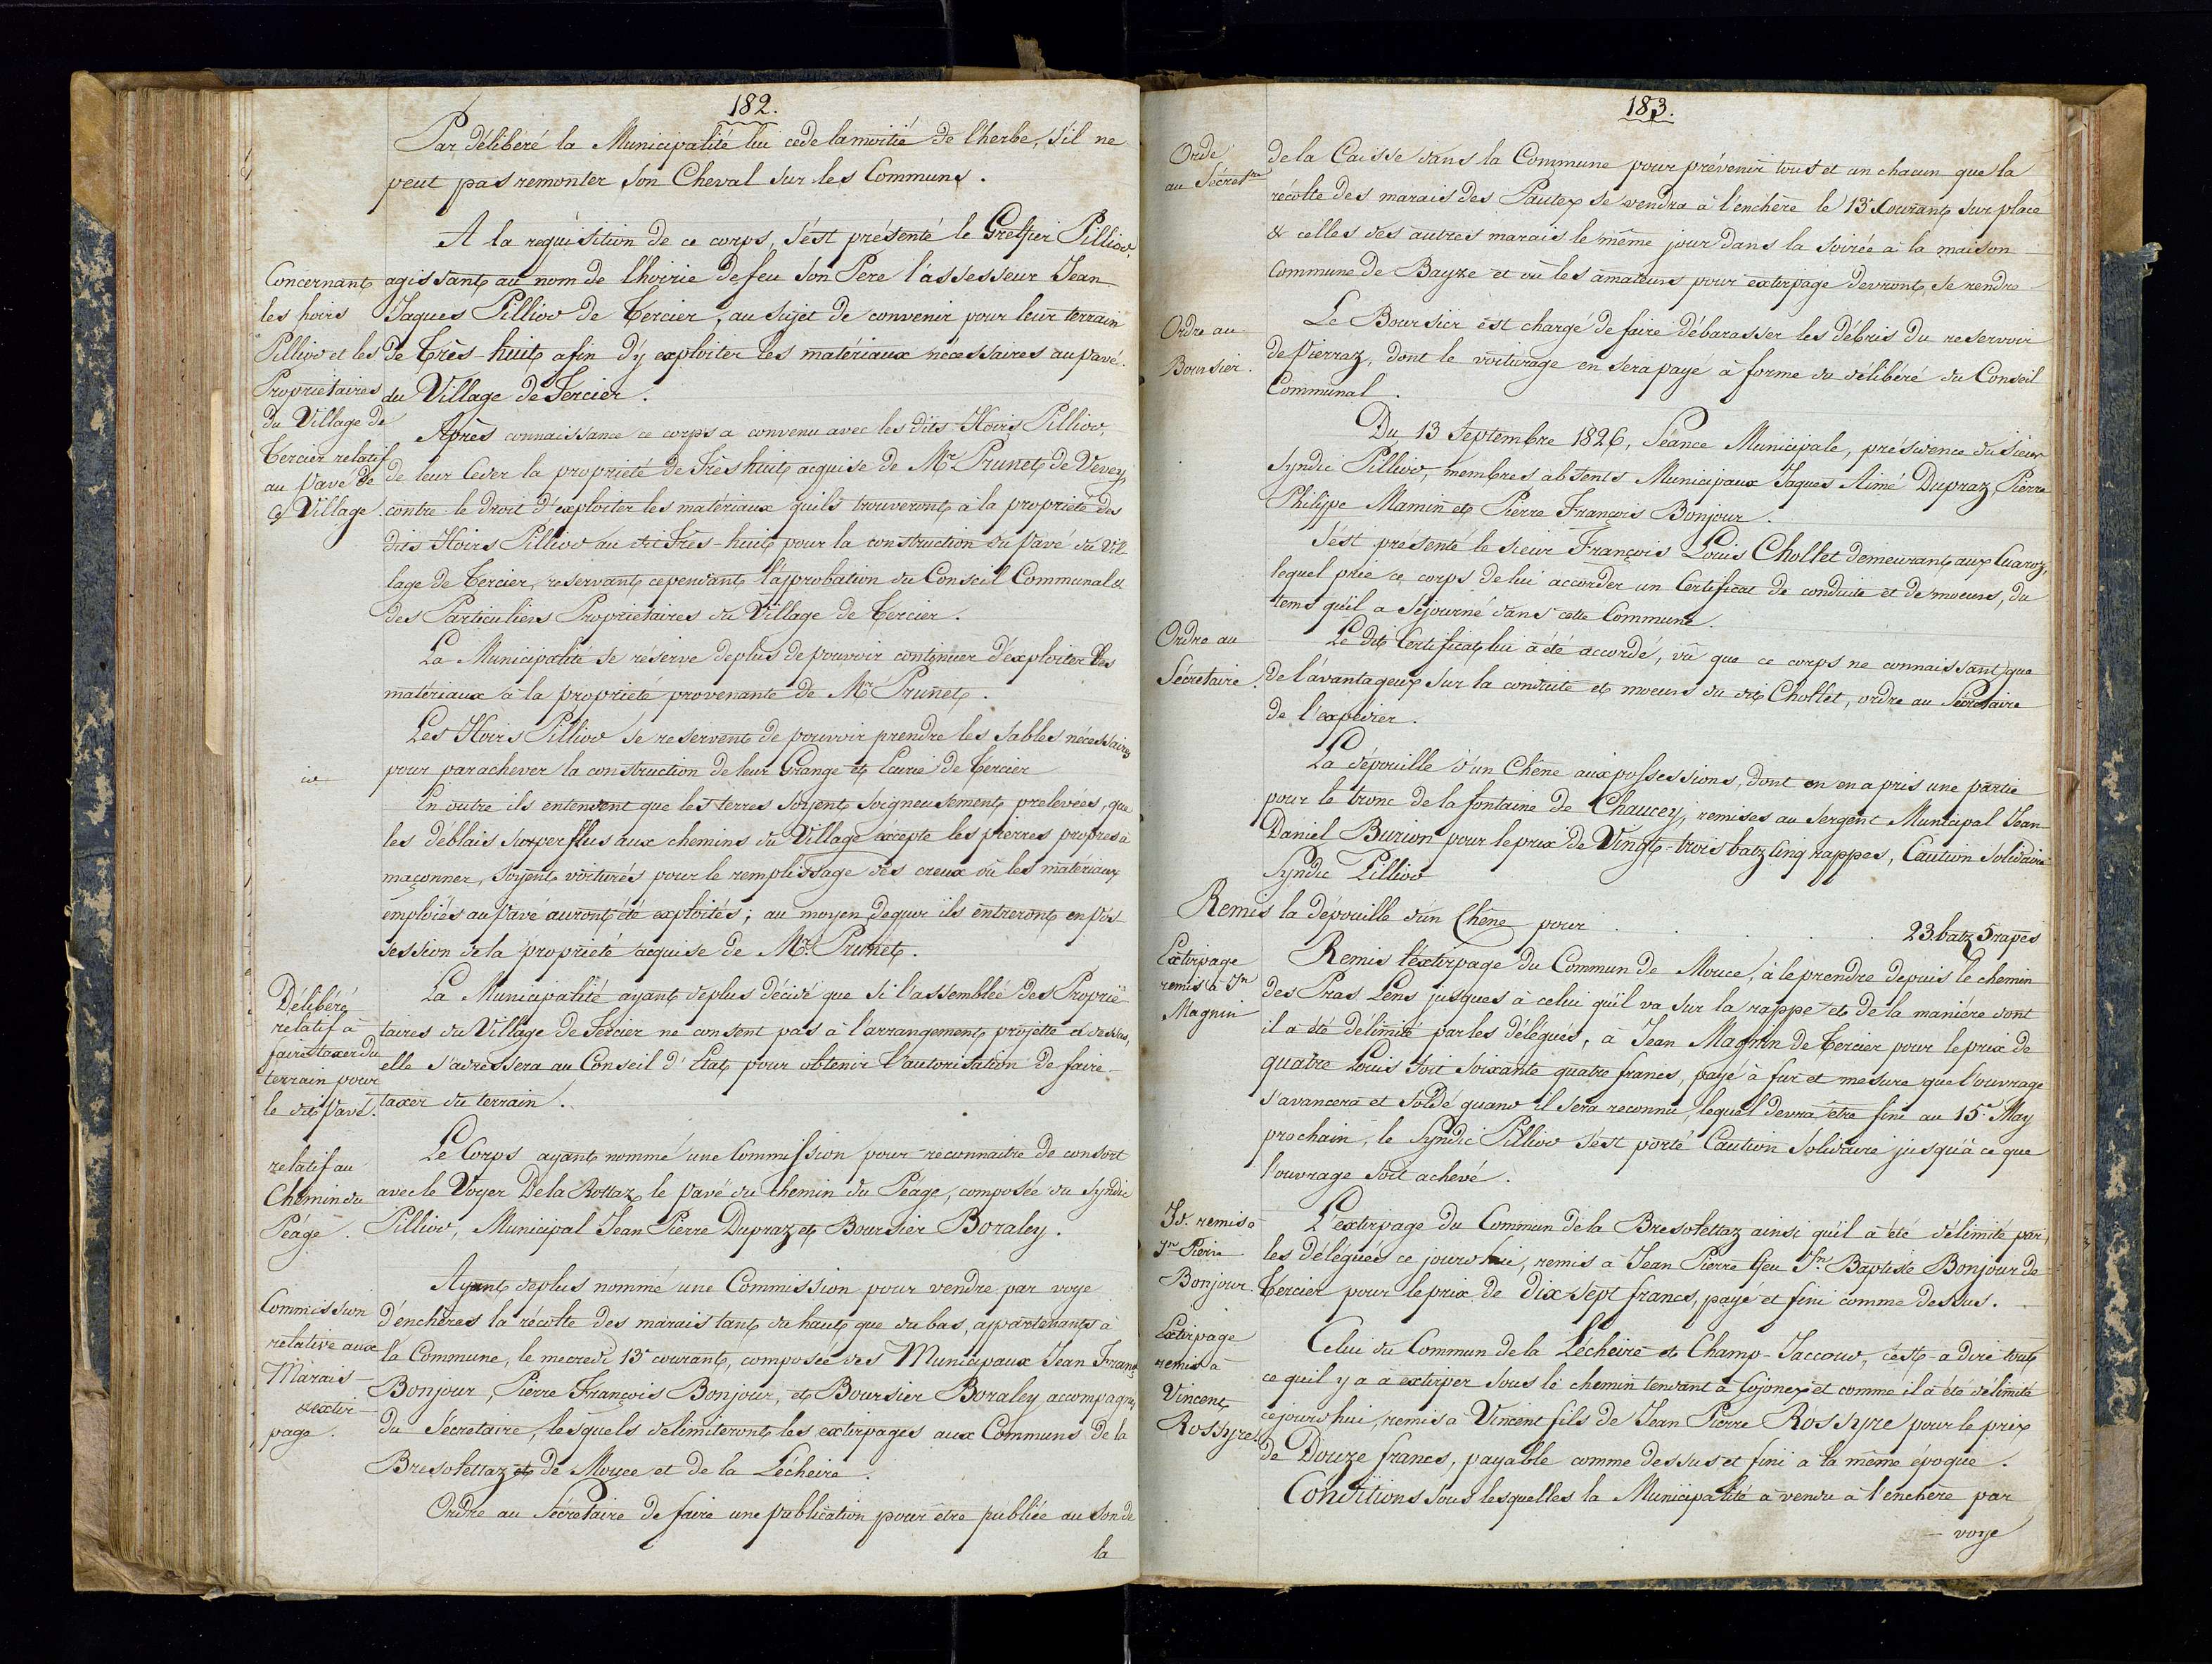 182.
Par délibéré la Municipalité lui cede la moitié de l'herbe, s'il ne
peut pas remonter son Cheval sur les Communs.
A la requisition de ce corps, s'est présenté le Greffier Pilliod,
agissant au nom de l'hoirie de feu son Pere l'assesseur Jean
Jaques Pilliod de Tercier, au sujet de convenir pour leur terrain
de Très-huit afin d'y exploiter les matériaux nécessaires au pavé
du Village de Tercier.
Concernant
les hoirs
Pilliod et les
Proprietaires
du Village de
Tercier relatif
au Pavé de
ce Village.
Après connaissance ce corps a convenu avec les dits Hoirs Pilliod,
de leur Ceder la proprieté de Très huit acquise de Mr. Prunet de Vevey
contre le droit d'exploiter les matériaux qu'ils trouveront à la proprieté des
dits Hoirs Pilliod au dit Très-huit pour la construction du Pavé du Vil-
lage de Tercier, reservant cependant l'approbation du Conseil Communal &
des Particuliers Proprietaires du Village de Tercier.
La Municipalité se réserve deplus de pouvoir continuer d'exploiter les
matériaux à la proprieté provenante de Mr. Prunet.
Les Hoirs Pilliod se reservent de pouvoir prendre les sables nécessaires
pour parachever la construction de leur Grange et Ecurie de Tercier
En outre ils entendent que les terres soyent soigneusement prelevées, que
les déblais superflus aux chemins du Village excepté les pierres propres à
maçonner, soyent voiturés pour le remplissage des creux où les matériaux
emploiés au Pavé auront été exploités; au moyen dequoi ils entreront en pos-
session de la proprieté acquise de Mr. Prunet.
Délibéré
relatif à
faire taxer du
terrain pour
le dit Pavé.
La Municipalité ayant deplus décidé que si l'assemblée des Proprié-
taires du Village de Tercier ne consent pas à l'arrangement projetté ci dessus,
elle s'adressera au Conseil d'Etat pour obtenir l'autorisation de faire
taxer du terrain.
relatif au
Chemin du
Péage.
Le Corps ayant nommé une Commission pour reconnaitre de consort
avec le Voyer De la Rottaz le pavé du chemin du Péage, composée du Syndic
Pilliod, Municipal Jean Pierre Dupraz et Boursier Boraley.
Commission
relative aux
Marais
& extir-
page.
Ayant deplus nommé une Commission pour vendre par voye
d'enchères la récolte des marais tant du haut que du bas, appartenants à
la Commune, le mecredi 13e courant, composée des Municipaux Jean Franç
Bonjour, Pierre François Bonjour, et Boursier Boraley accompagnés
du Sécretaire, lesquels délimiteront les extirpages aux Communs de la
Bresolettaz et de Mouce et de la Lécheire.
Ordre au Sécretaire de faire une publication pour être publiée au son de
la
183.
Orde
au Sécretre
de la Caisse dans la Commune pour prévenir tous et un chacun que la
récolte des marais des Pautex se vendra à l'enchère le 13e Courant sur place
& celles des autres marais le même jour dans la soirée à la maison
Commune de Bayze et où les amateurs pour extirpage devront se rendre
Ordre au
Boursier.
Le Boursier est chargé de faire débarasser les débris du reservoir
de Pierraz, dont le voiturage en sera payé à forme du délibéré du Conseil
Communal.
Du 13 Septembre 1826, Séance Municipale, présidence du sieur
Syndic Pilliod, membres absents Municipaux Jaques Aimé Dupraz, Pierre
Philippe Mamin et Pierre François Bonjour.
S'est présenté le sieur François Louis Chollet demeurant aux Cuaroz,
lequel prie ce corps de lui accorder un Certificat de conduite et de moeurs, du
tems qu'il a séjourné dans cette Commune.
Ordre au
Sécretaire.
Le dit Certificat lui a été accordé, vû que ce corps ne connaissant que
de l'avantageux sur la conduite et moeurs du dit Chollet, ordre au Sécretaire
de l'expedier.
La dépouille d'un Chêne aux possessions, dont on en a pris une partie
pour le tronc de la fontaine de Chaucey, remises au Sergent Municipal Jean
Daniel Burion pour le prix de Vingt-trois batz cinq rappes, Caution solidaire
Syndic Pilliod
Remis la dépouille d'un Chêne pour . . . . 23. batz 5 rapes
Extirpage
remis à Jn
Magnin
Remis l'extirpage du Commun de Mouce, à le prendre depuis le chemin
des Pras Lens jusques à celui qu'il va sur la rappe et de la maniére dont
il a été délimité par les délégués, à Jean Magnin de Tercier pour le prix de
quatre Louis soit soixante quatre francs, payé à fur et mesure que l'ouvrage
s'avancera et soldé quand il sera reconnu, lequel devra être fini au 15e May
prochain, le Syndic Pilliod s'est porté Caution solidaire jusqu'à ce que
l'ouvrage soit achevé.
Id. remis à
Jn Pierre
Bonjour.
L'extirpage du Commun de la Bresolettaz ainsi qu'il a été délimité par
les délégués ce jourd'hui, remis à Jean Pierre feu Jn. Baptiste Bonjour de
Tercier pour le prix de dix-sept francs, payé et fini comme dessus.
Extirpage
remis à
Vincent
Rossyre
Celui du Commun de la Lécheire et Champ-Jaccoud, c'est-a dire tout
ce qu'il y a à extirper sous le chemin tendant à Cojonex et comme il a été délimité
cejourd'hui, remis à Vincent fils de Jean Pierre Rossyre pour le prix
de Douze francs, payable comme dessus et fini à la même époque.
Conditions sous lesquelles la Municipalité a vendu à l'enchère par
voye